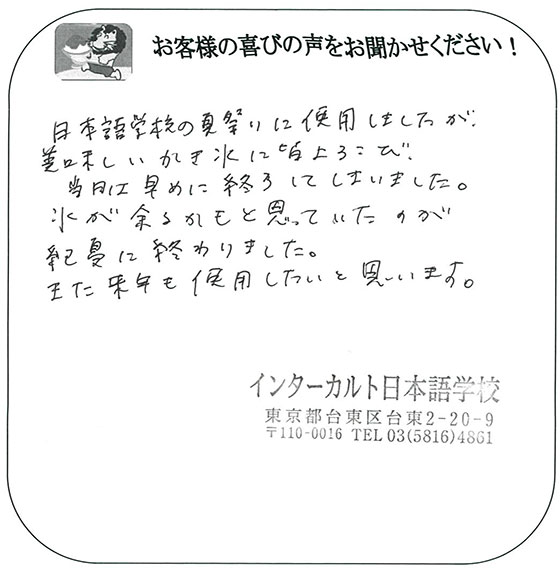 お客様の喜びの声をお聞かせください！
日本語学校の夏祭りに使用しましたが、
美味しいかき氷に皆よろこび、
当日は早めに終了してしまいました。
氷が余るかもと思っていたのが
杞憂に終わりました。
また来年も使用したいと思います。
インターカルト日本語学校
東京都台東区台東2-20-9
〒110-0016 TEL 03(5816)4861